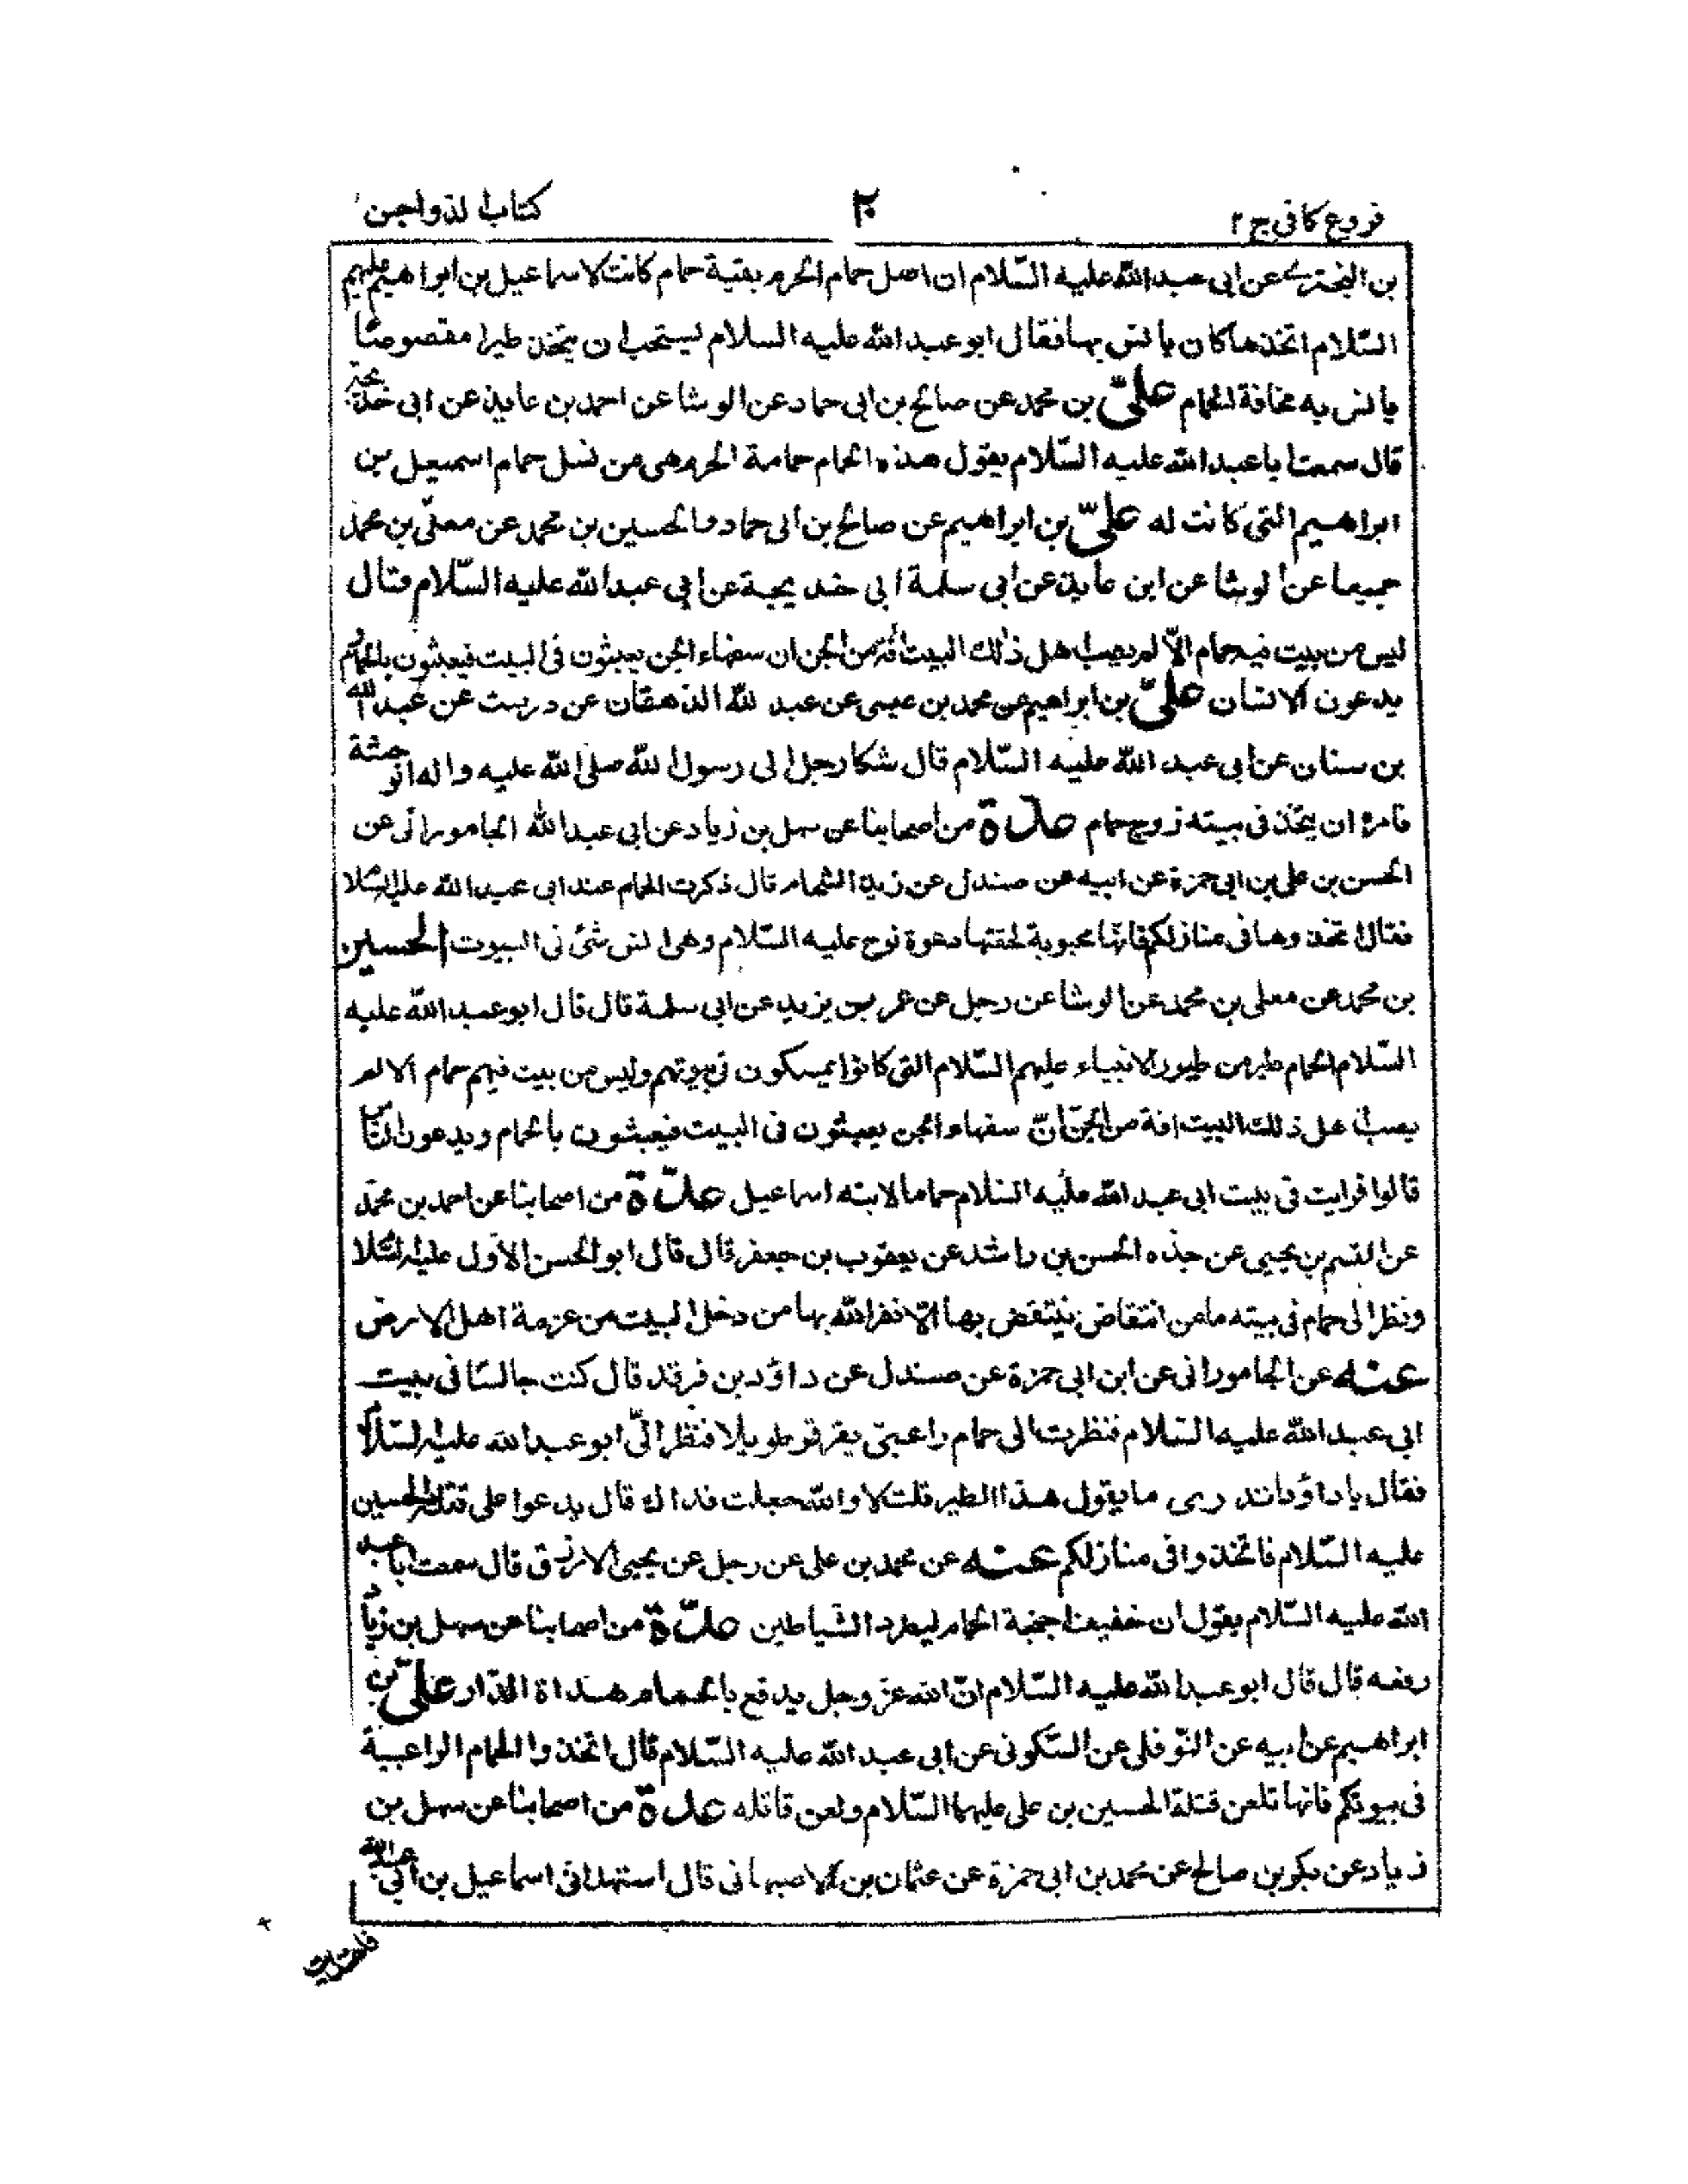 فروع کافی ج ۲
۲۰
کتاب الدواجن
بن البخترے عن ابی عبد الله علیه السّلام ان اصل حمام الحرم بقیة حمام کانت لاسماعیل بن ابراهیم علیهم
السّلام اتخذها کان یانس بها فقال ابو عبد الله علیه السلام لیستحب ان یتخذ طیرا مقصوصا
یانس به مخافة الهوام علیّ بن محمد عن صالح بن ابی حماد عن الوشا عن احمد بن عایذ عن ابی خدیجة
قال سمعت ابا عبد الله علیه السّلام یقول هذه الحمام حمامة الحرم هی من نسل حمام اسمعیل بن
ابراهیم التی کانت له علیّ بن ابراهیم عن صالح بن ابی حماد و الحسین بن محمد عن معلّی بن محمد
جمیعا عن الوشا عن ابن عایذ عن ابی سلمة ابی خدیجة عن ابی عبد الله علیه السّلام قال
لیس من بیت فیه حمام الاّ لم یصب اهل ذلك البیت آفة من الجن ان سفهاء الجن یعبثون فی البیت فیعبثون بالحمام و
یدعون الانسان علیّ بن ابراهیم عن محمد بن عیسی عن عبد الله الدهقان عن درست عن عبد الله
بن سنان عن ابی عبد الله علیه السّلام قال شکا رجل الی رسول الله صلی الله علیه و اله الوحشة
فامره ان یتخذ فی بیته زوج حمام عدّة من اصحابنا عن سهل بن زیاد عن ابی عبد الله الجامورانی عن
الحسن بن علی بن ابی حمزة عن ابیه عن صندل عن زید الشحام قال ذکرت الحمام عند ابی عبد الله علیه السّلا
فقال اتخذوها فی منازلکم فانّها محبوبة لحقتها دعوة نوح علیه السّلام وهی انس شئ فی البیوت الحسین
بن محمد عن معلی بن محمد عن الوشا عن رجل عن عمر بن یزید عن ابی سلمة قال قال ابو عبد الله علیه
السّلام الحمام طیر من طیور الانبیاء علیهم السّلام التی کانوا یمسکون فی بیوتهم ولیس من بیت فیهم حمام الا لم
یصب اهل ذلك البیت افة من الجن انّ سفهاء الجن یعبثون فی البیت فیعبثون بالحمام ویدعون الناس
قالوا فرایت فی بیت ابی عبد الله علیه السّلام حماما لابنه اسماعیل عدّة من اصحابنا عن احمد بن محمّد
عن القسم بن یحیی عن جدّه الحسن بن راشد عن یعقوب بن جعفر قال قال ابو الحسن الاوّل علیه السّلا
ونظر الی حمام فی بیته ما من انتقاض ینتقض بها الاّ نفر الله بها من دخل البیت من عزمة اهل الارض
عنه عن الجامورانی عن ابن ابی حمزة عن صندل عن داؤد بن فرقد قال کنت جالسا فی بیت
ابی عبد الله علیه السّلام فنظرت الی حمام راعبیّ یقرقر طویلا فنظر الیّ ابو عبد الله علیه السّلام
فقال یا داؤد اتدری ما یقول هذا الطیر قلت لا والله جعلت فداك قال یدعوا علی قتلة الحسین
علیه السّلام فاتخذوا فی منازلکم عنه عن محمد بن علی عن رجل عن یحیی الازرق قال سمعت ابا عبد
الله علیه السّلام یقول ان خفیف اجنحة الحمام لیطرد الشّیاطین عدّة من اصحابنا عن سهل بن زیاد
رفعه قال قال ابو عبد الله علیه السّلام انّ الله عز وجل یدفع بالحمام هداة الدّار علیّ بن
ابراهیم عن ابیه عن النّوفلی عن السّکونی عن ابی عبد الله علیه السّلام قال اتخذوا الحمام الراعبیة
فی بیوتکم فانها تلعن قتلة الحسین بن علی علیهما السّلام ولعن قاتله عدة من اصحابنا عن سهل بن
زیاد عن بکر بن صالح عن محمد بن ابی حمزة عن عثمان بن الاصبهانی قال استهدانی اسماعیل بن ابی عبد الله